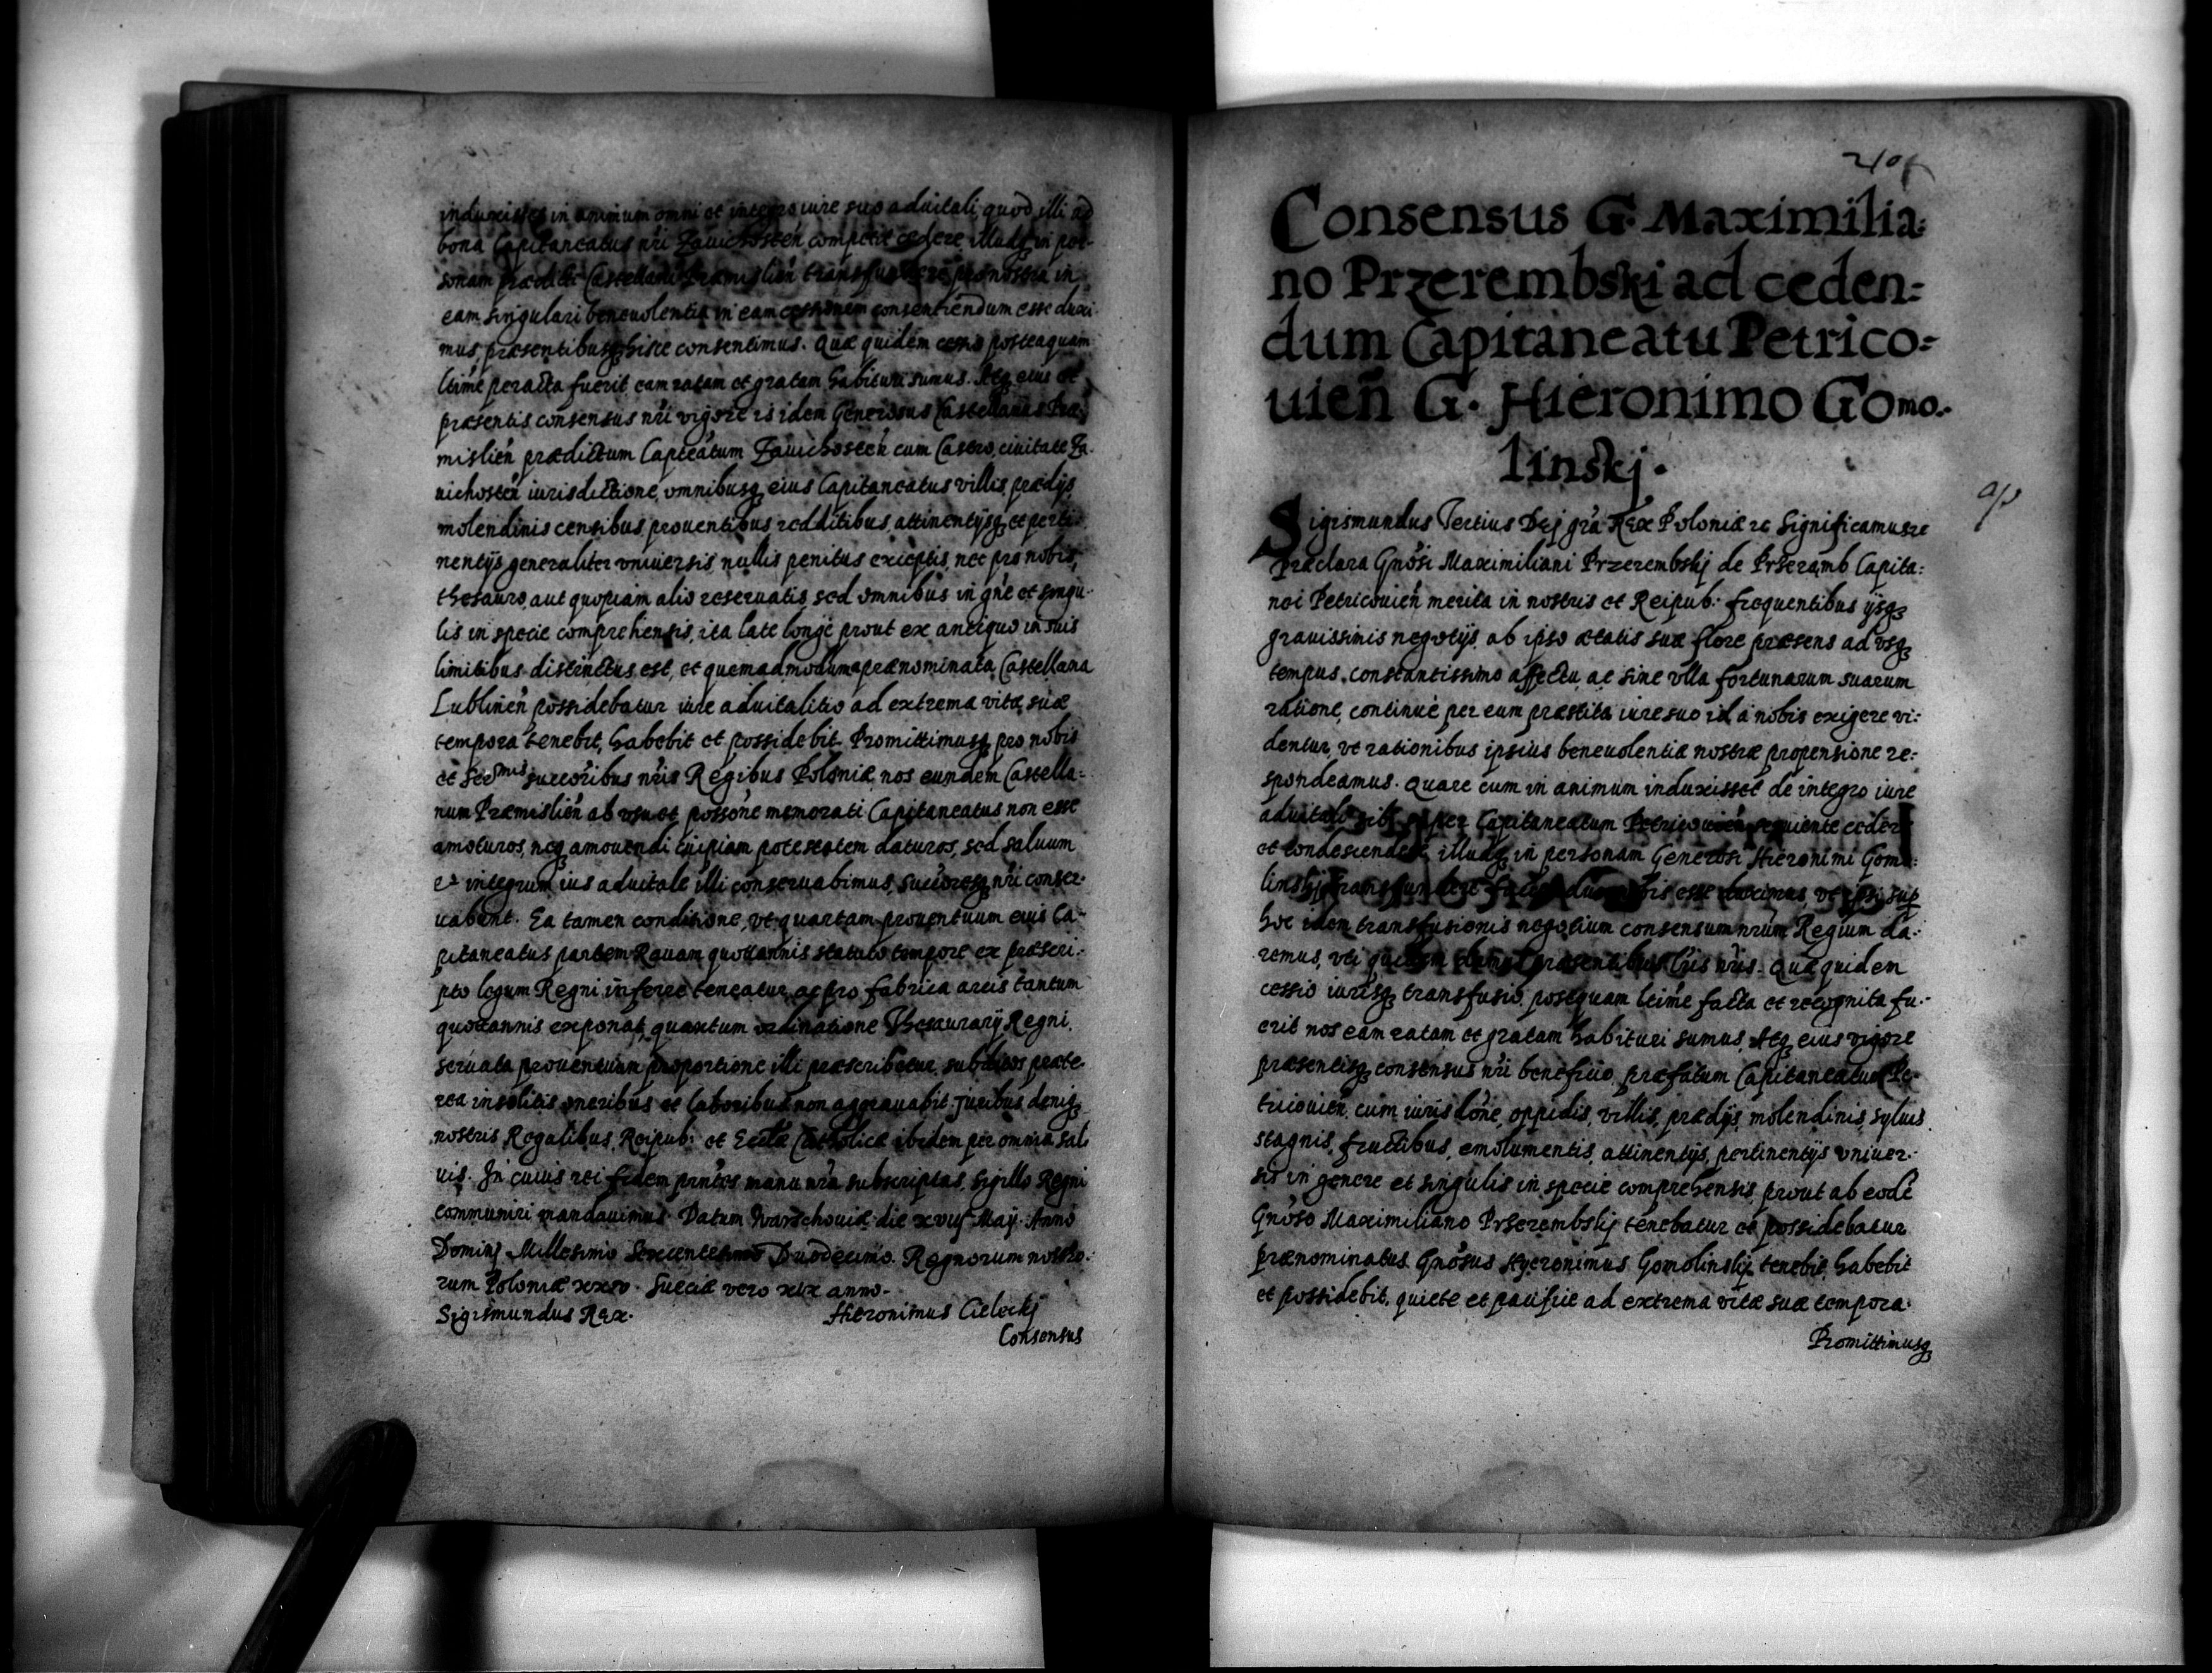 induxisset in animum omni et integro iure suo aduitali quod illi ad
bona Capitaneatus nr̃i Zauichosten̄ competit cedere illudq in per-
sonam prædicti Castellani Præmislien̄ transfundere pro nostra in
eam singulari beneuolentia in eam cessionem consentiendum esse duxi-
mus, præsentibusq hisce consentimus. Quæ quidem posteaquam
ltime peracta fuerit eam ratam et gratam habituri sumus. Atq eius et
præsentis consensus nr̃i vigore is idem Generosus Castellanus Præ-
mislien̄ prædictum Capteatum Zauichosten̄ cum Castro, ciuitate Za-
uichosten̄ iurisdictione, omnibusq eius Capitaneatus villis, prædijs,
molendinis censibus, prouentibus redditibus, attinentijsq et perti-
nentijs generaliter vniuersis, nullis penitus exceptis, nec pro nobis,
thesauro, aut quopiam alio reseruatis sed omnibus in gn̄e et singu-
lis in specie comprehensis, ita late longe prout ex antiquo in suis
limitibus distinctus est, et quemadmodum a prænominata Castellana
Lublinen̄ possidebatur iure aduitalitio ad extrema vitæ suæ
tempora tenebit, habebit et possidebit. Promittimusq pro nobis
et Ser^mis succ̃oribus nr̃is Regibus Poloniæ, nos eundem Castella-
num Præmislien̄ ab vsu et poss̃one memorati Capitaneatus non esse
amoturos, neq amouendi cuipiam potestatem daturos, sed saluum
et integrum ius aduitale illi conseruabimus, succ̃oresq nr̃i conser-
uabunt. Ea tamen conditione, vt quartam prouentuum eius Ca-
pitaneatus partem Rauam quotannis statuto tempore ex præscri-
pto legum Regni inferre teneatur, ac pro fabrica arcis tantum
quotannis exponat, quantum ordinatione Thesaurarij Regni,
seruata prouentuum proportione illi præscribetur, subditos præte-
rea insolitis oneribus et laboribus non aggrauabit. Juribus deniq
nostris Regalibus, Reipub: et Eccl̃æ Catholicæ ibidem per omnia sal-
uis. In cuius rei fidem pr̃ntes manu nr̃a subscriptas, Sigillo Regni
communiri mandauimus. Datum Warschouiæ die xvuj Maij Anno
Dominj Millesimo Sexcentesimo Duodecimo. Regnorum nostro-
rum Poloniæ xxv. Sueciæ vero xix anno.
Sigismundus Rex. Hieronimus Cielecki
Consensus
Consensus G. Maximilia-
no Przerembski ad ceden-
dum Capitaneatu Petrico-
uien̄ G. Hieronimo Gomo-
linskj.
Sigismundus Tertius Dej gr̃a Rex Poloniæ rc Significamus rc
Præclara Gn̄osi Maximiliani Przerembskj de Przeramb Capita-
nei Petricouien̄ merita in nostris et Reipub: frequentibus ijsq
grauissimis negotijs, ab ipso ætatis suæ flore præsens ad vsq
tempus, constantissimo affectu, ac sine vlla fortunarum suarum
ratione, continuè per eum præstita iure suo id à nobis exigere vi-
dentur, vt rationibus ipsius beneuolentiæ nostræ propensione re-
spondeamus. Quare cum in animum induxisset de integro iure
aduitali sibi super Capitaneatum Petricouien̄ seruiente cedere
et condescendere, illudq in personam Generosi Hieronimi Gomo-
linskj transfundere faciendum nobis esse duximus, vt ipsi sup
hoc idem transfusionis negotium consensum nr̃um Regium da-
remus, vti quidem damus præsentibus lr̃is nr̃is. Quæ quidem
cessio iurisq transfusio, postquam ltime facta et recognita fu-
erit nos eam ratam et gratam habituri sumus, Atq eius vigore
præsentisq consensus nr̃i beneficio, præfatum Capitaneatum Pe-
tricouien̄, cum iurisd̃one, oppidis, villis, prædijs, molendinis, syluis
stagnis, fructibus, emolumentis, attinentijs, pertinentijs vniuer-
sis in genere et singulis in specie comprehensis, prout ab eodẽ
Gn̄oso Maximiliano Przerembskj tenebatur et possidebatur
prænominatus Gn̄osus Hyeronimus Gomolinskj tenebit, habebit
et possidebit, quiete et pacifice ad extrema vitæ suæ tempora.
Promittimusq